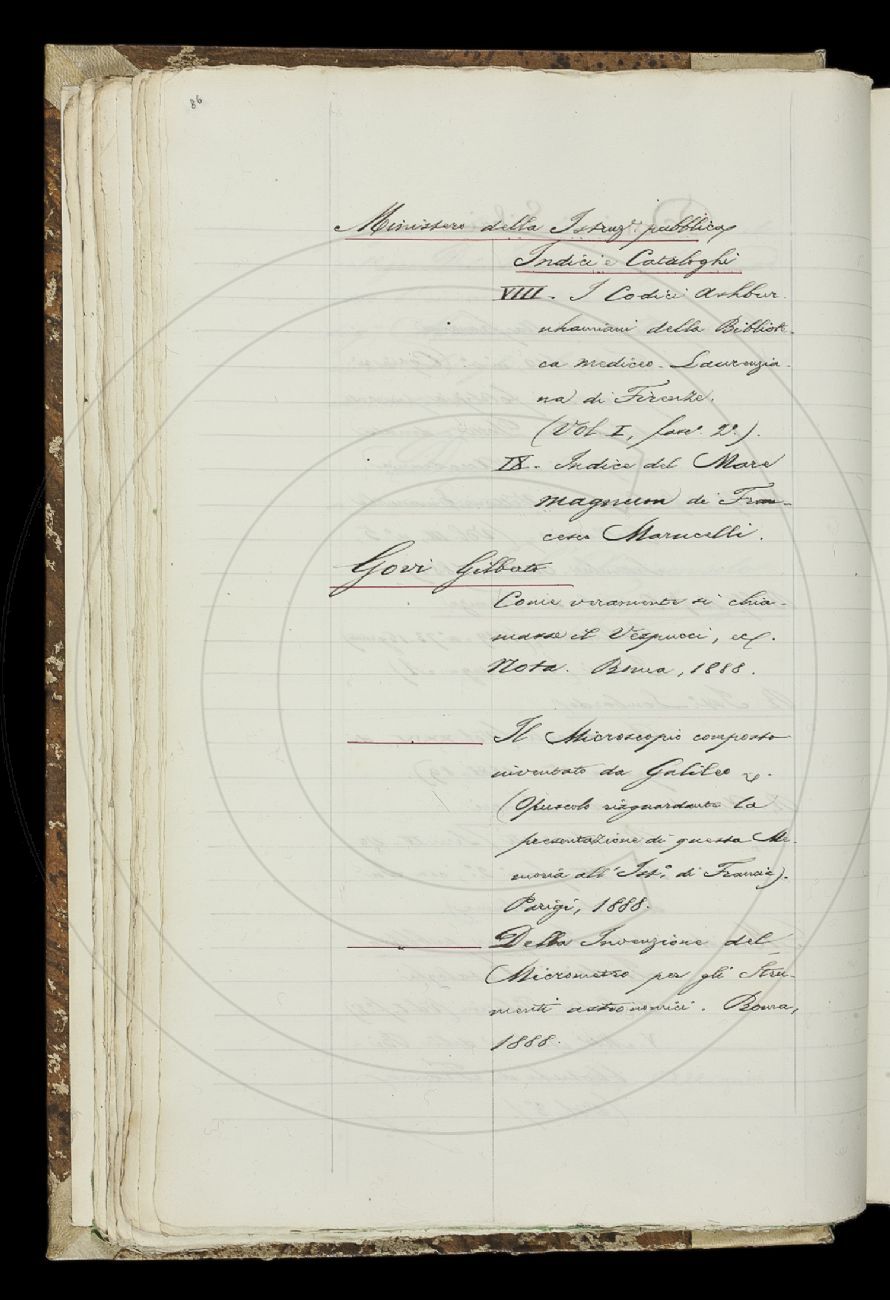 86
Ministero della Istruz.e pubblica
Indici e Cataloghi
VIII - I Codici Ashbur-
nhamiani della Bibliote-
ca mediceo-Laurenzia-
na di Firenze.
(Vol. I, fasc. 2°).
IX - Indice del Mare
magnum di Fran-
cesco Marucelli.
Govi Gilberto
Come veramente si chia-
masse il Vespucci, ec.
Nota. Roma, 1888.
Il Microscopio composto
inventato da Galileo
(Opuscolo risguardante la
presentazione di questa Me-
moria all'Ist.o di Francia).
Parigi, 1888.
Della Invenzione del
Micrometro per gli Stru-
menti astronomici. Roma,
1888.